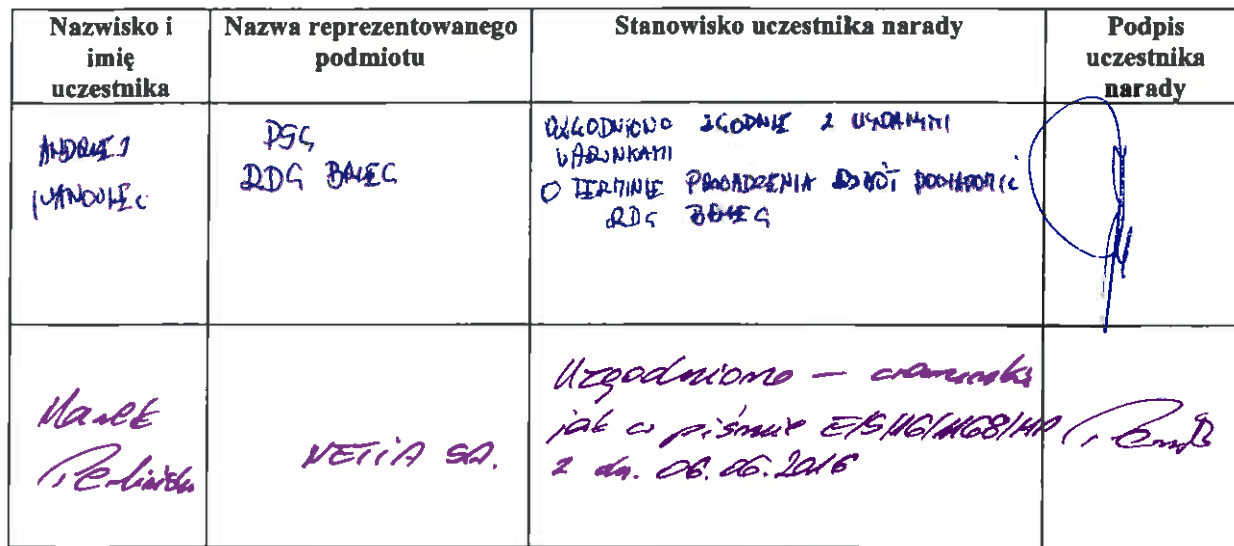 Nazwisko i
imię
uczestnika
Nazwa reprezentowanego
podmiotu
Stanowisko uczestnika narady
Podpis
uczestnika
narady
ANDRZEJ
PSG
RDG
UZGODNIONO ZGODNIE Z WYDANYMI
WARUNKAMI
O TERMINIE PROWADZENIA ROBÓT POWIADOMIĆ
RDG
Marek
NETIA SA.
Uzgodniono —
jak w piśmie
z dn. 06.06.2016